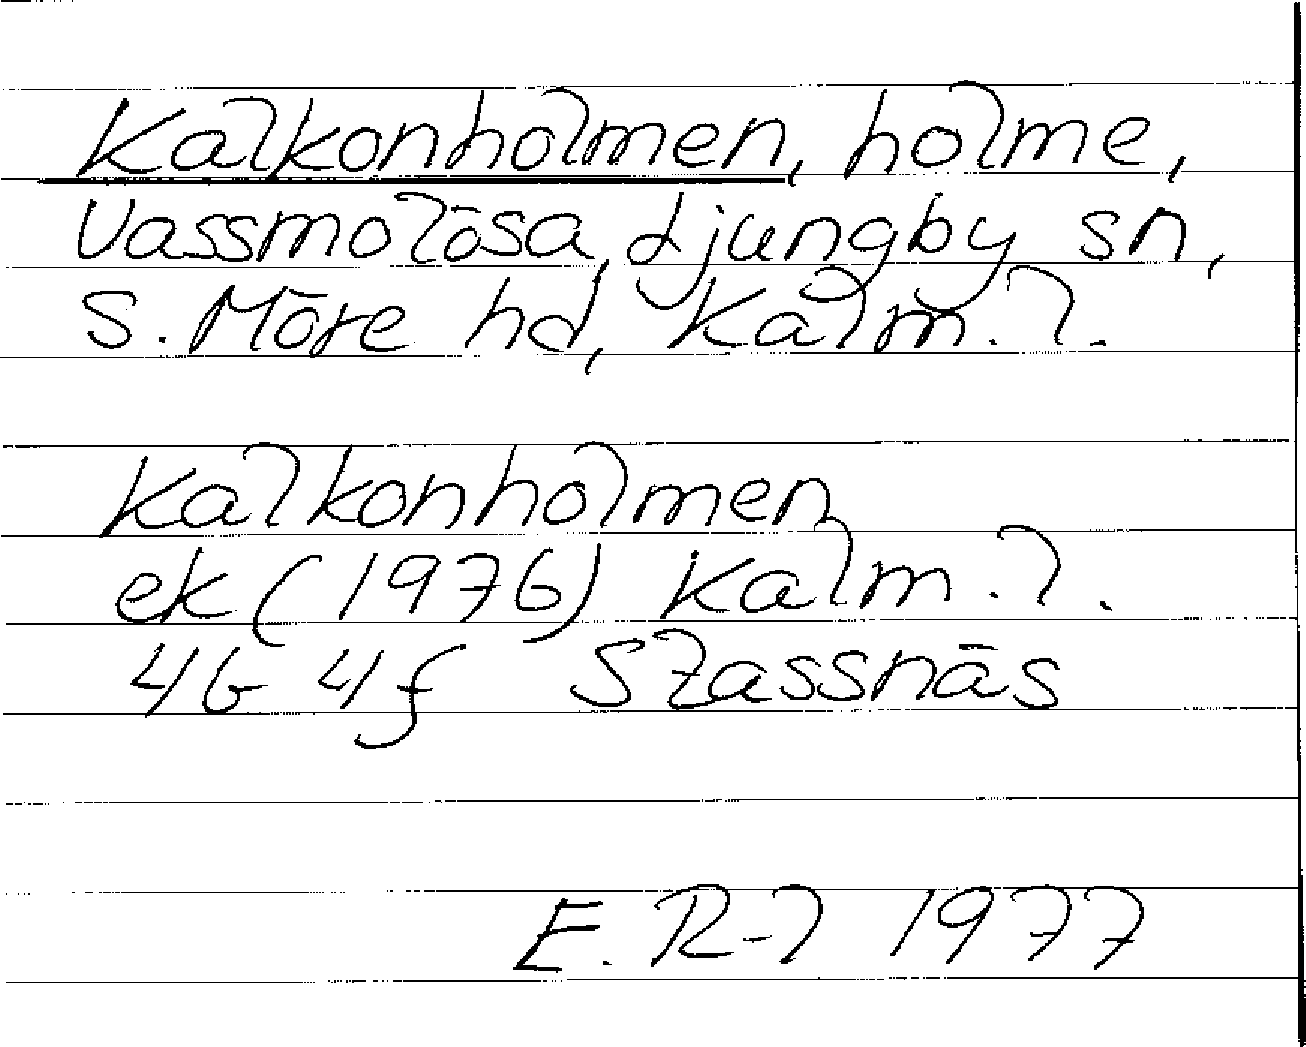 Kalkonholmen, holme,
Vassmolösa, Ljungby sn,
S. Möre hd, Kalm. l.
Kalkonholmen
ek (1976) Kalm. l.
4G 4f Slassnäs
E. R-l 1977